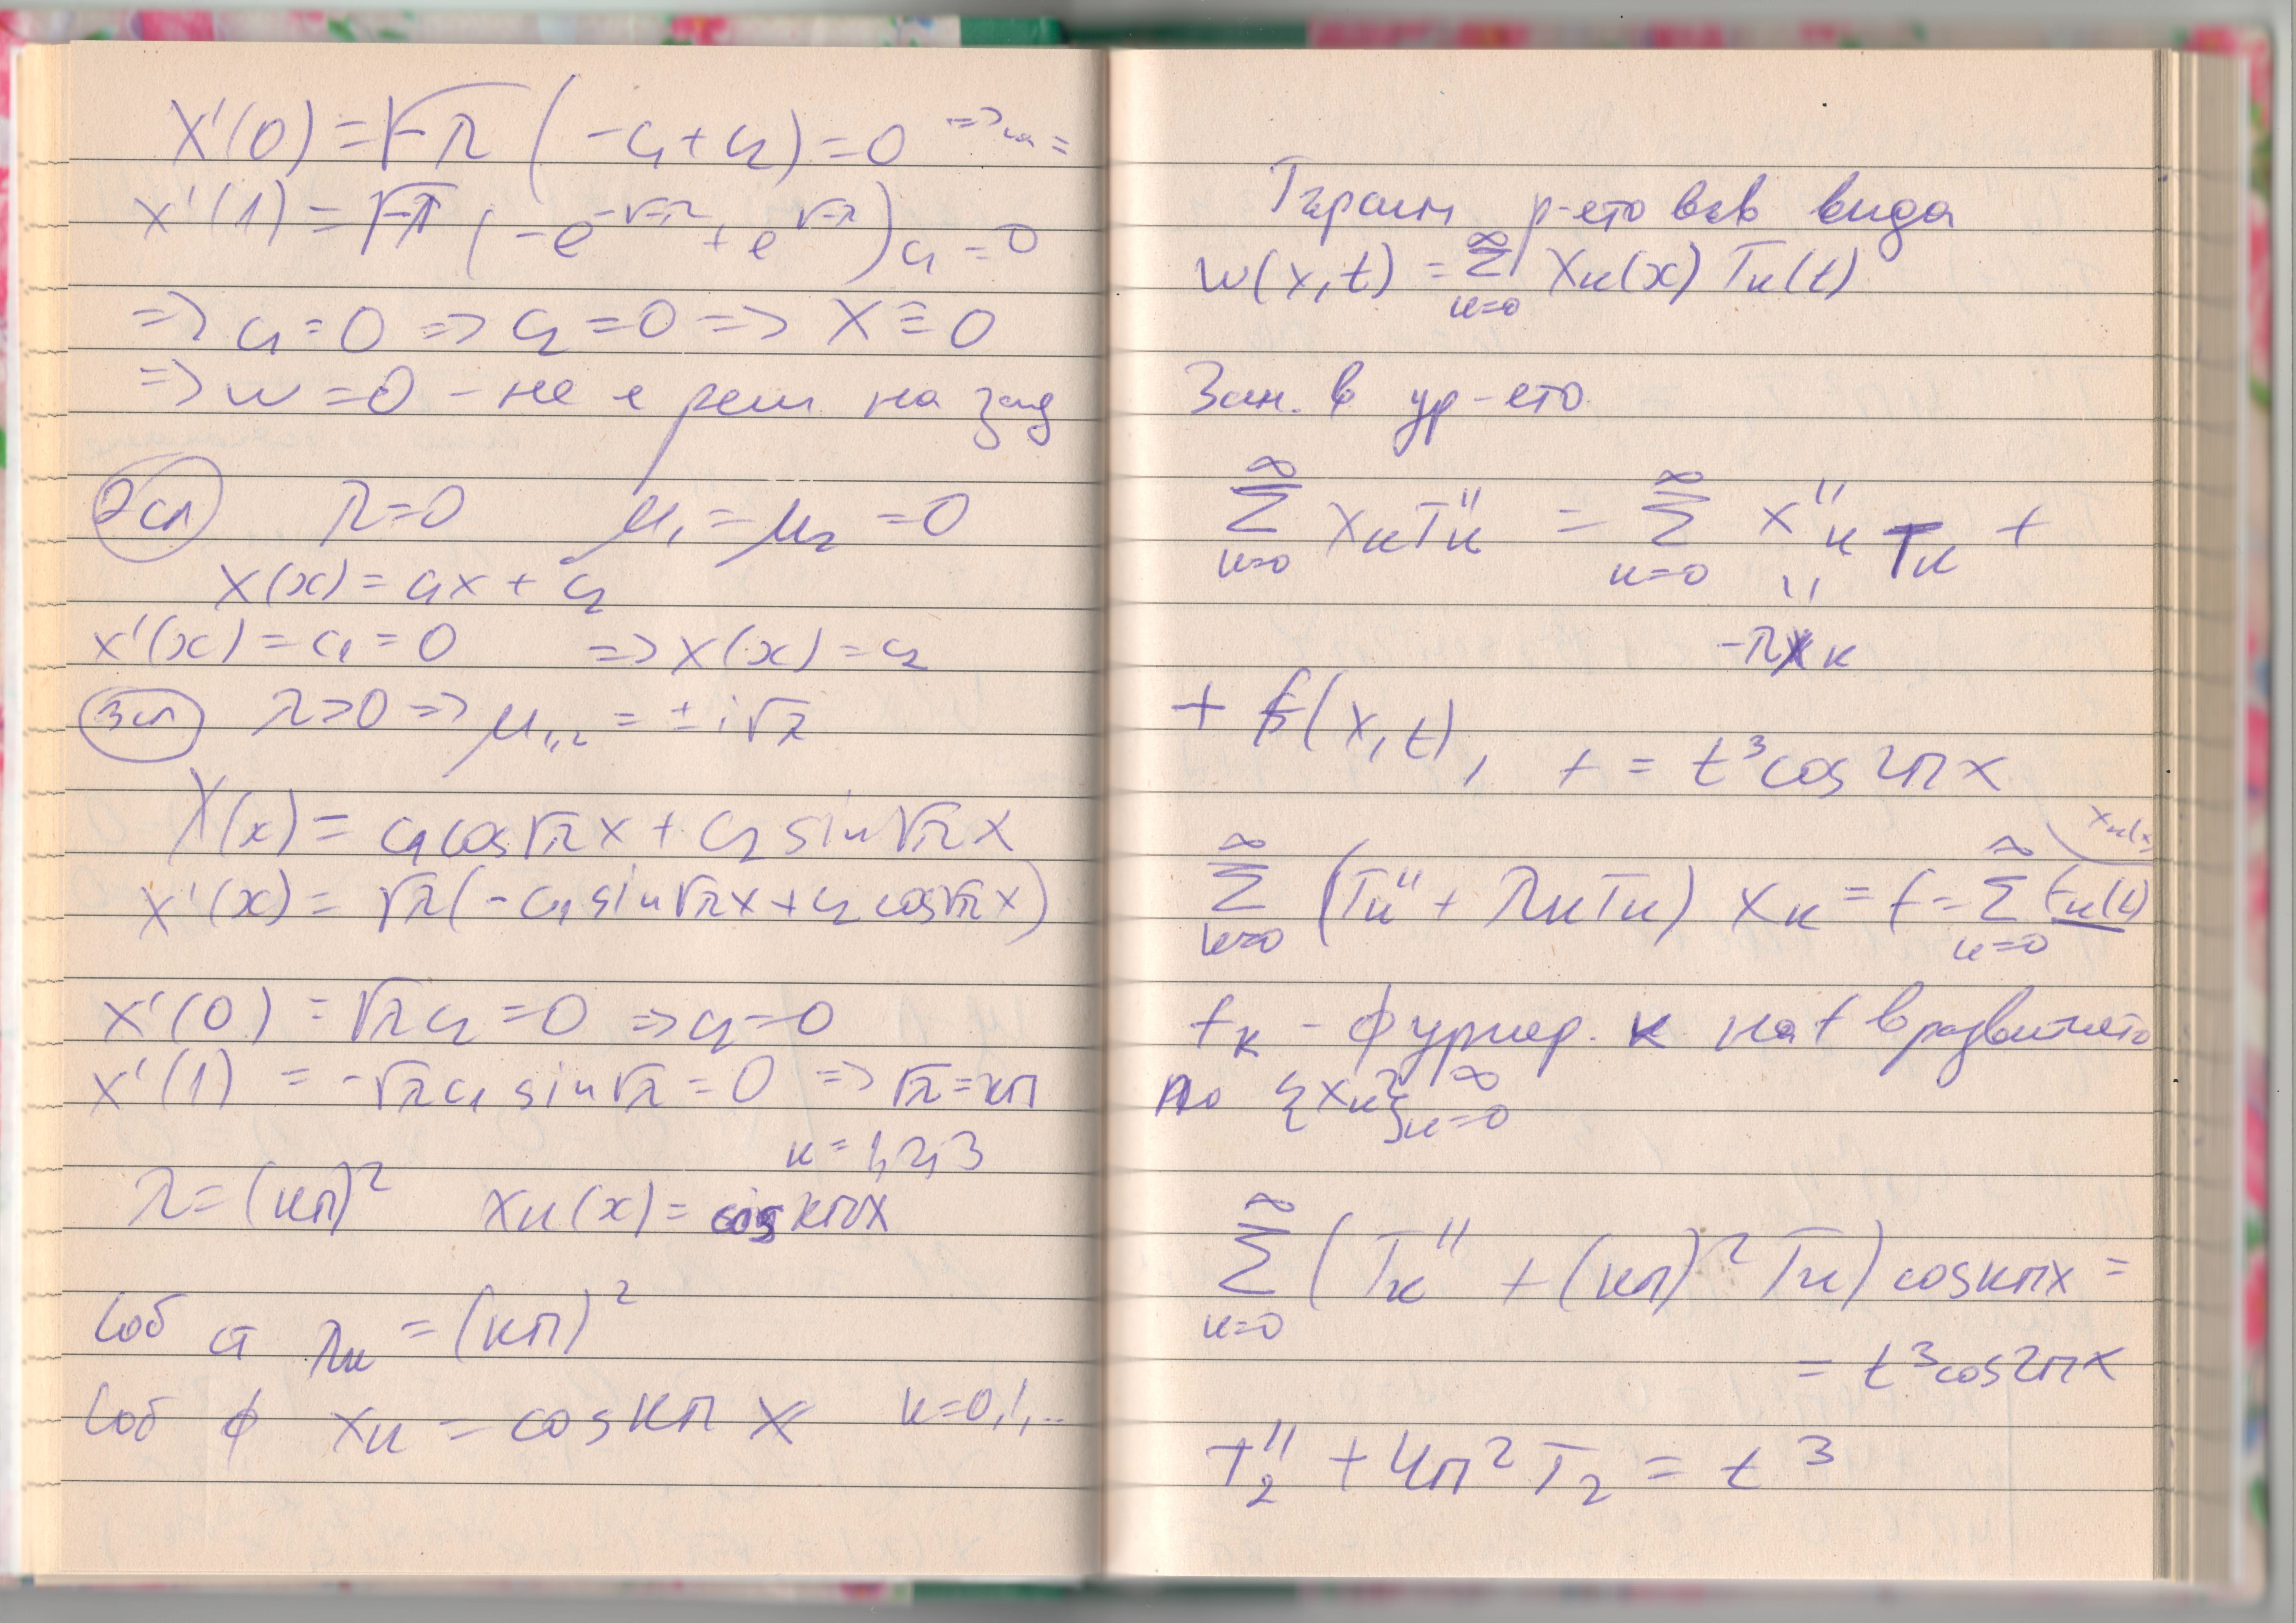 X'(0) = √-λ (-c₁ + c₂) = 0 =>
X'(1) = √-λ (-e^{-√-λ} + e^{√-λ}) c₁ = 0
=> c₁ = 0 => c₂ = 0 => X ≡ 0
=> w = 0 - не е реш на зад
2сл λ=0 μ₁ = μ₂ = 0
X(x) = c₁x + c₂
X'(x) = c₁ = 0 => X(x) = c₂
3сл λ>0 => μ₁,₂ = ± i√λ
X(x) = c₁cos√λx + c₂ sin√λx
X'(x) = √λ(-c₁ sin√λx + c₂ cos√λx)
X'(0) = √λc₂ = 0 => c₂=0
X'(1) = -√λc₁ sin√λ = 0 => √λ=кπ
к = 1,2,3
λ = (кπ)² Xк(x) = cos кπx
Соб ст λк = (кπ)²
Соб ф Xк = cos кπ x к=0,1,..
Търсим р-ето във вида
w(x,t) = ∑_{к=0}^{∞} Xк(x) Tк(t)
Зам. в ур-ето
∑_{к=0}^{∞} XкTк'' = ∑_{к=0}^{∞} X''к Tк +
"
-λXк
+ f(x,t), f = t³cos2πx
∑_{к=0}^{∞} (Tк'' + λкTк) Xк = f = ∑_{к=0}^{∞} fк(t) Xк(x)
fк - фуриер. к на f в развитието
по {Xк}_{к=0}^{∞}
∑_{к=0}^{∞} (Tк'' + (кπ)² Tк) cosкπx =
= t³cos2πx
T₂'' + 4π² T₂ = t³